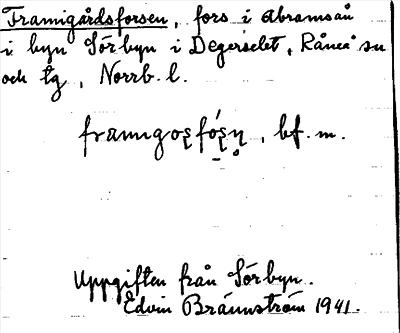 Framigårdsforsen, fors i Abramsån
i byn Sörbyn i Degerselet, Råneå sn
och tg, Norrb. l.
framıgoʂfóʂn̥, bf. m.
Uppgiften från Sörbyn.
Edvin Brännström 1941.